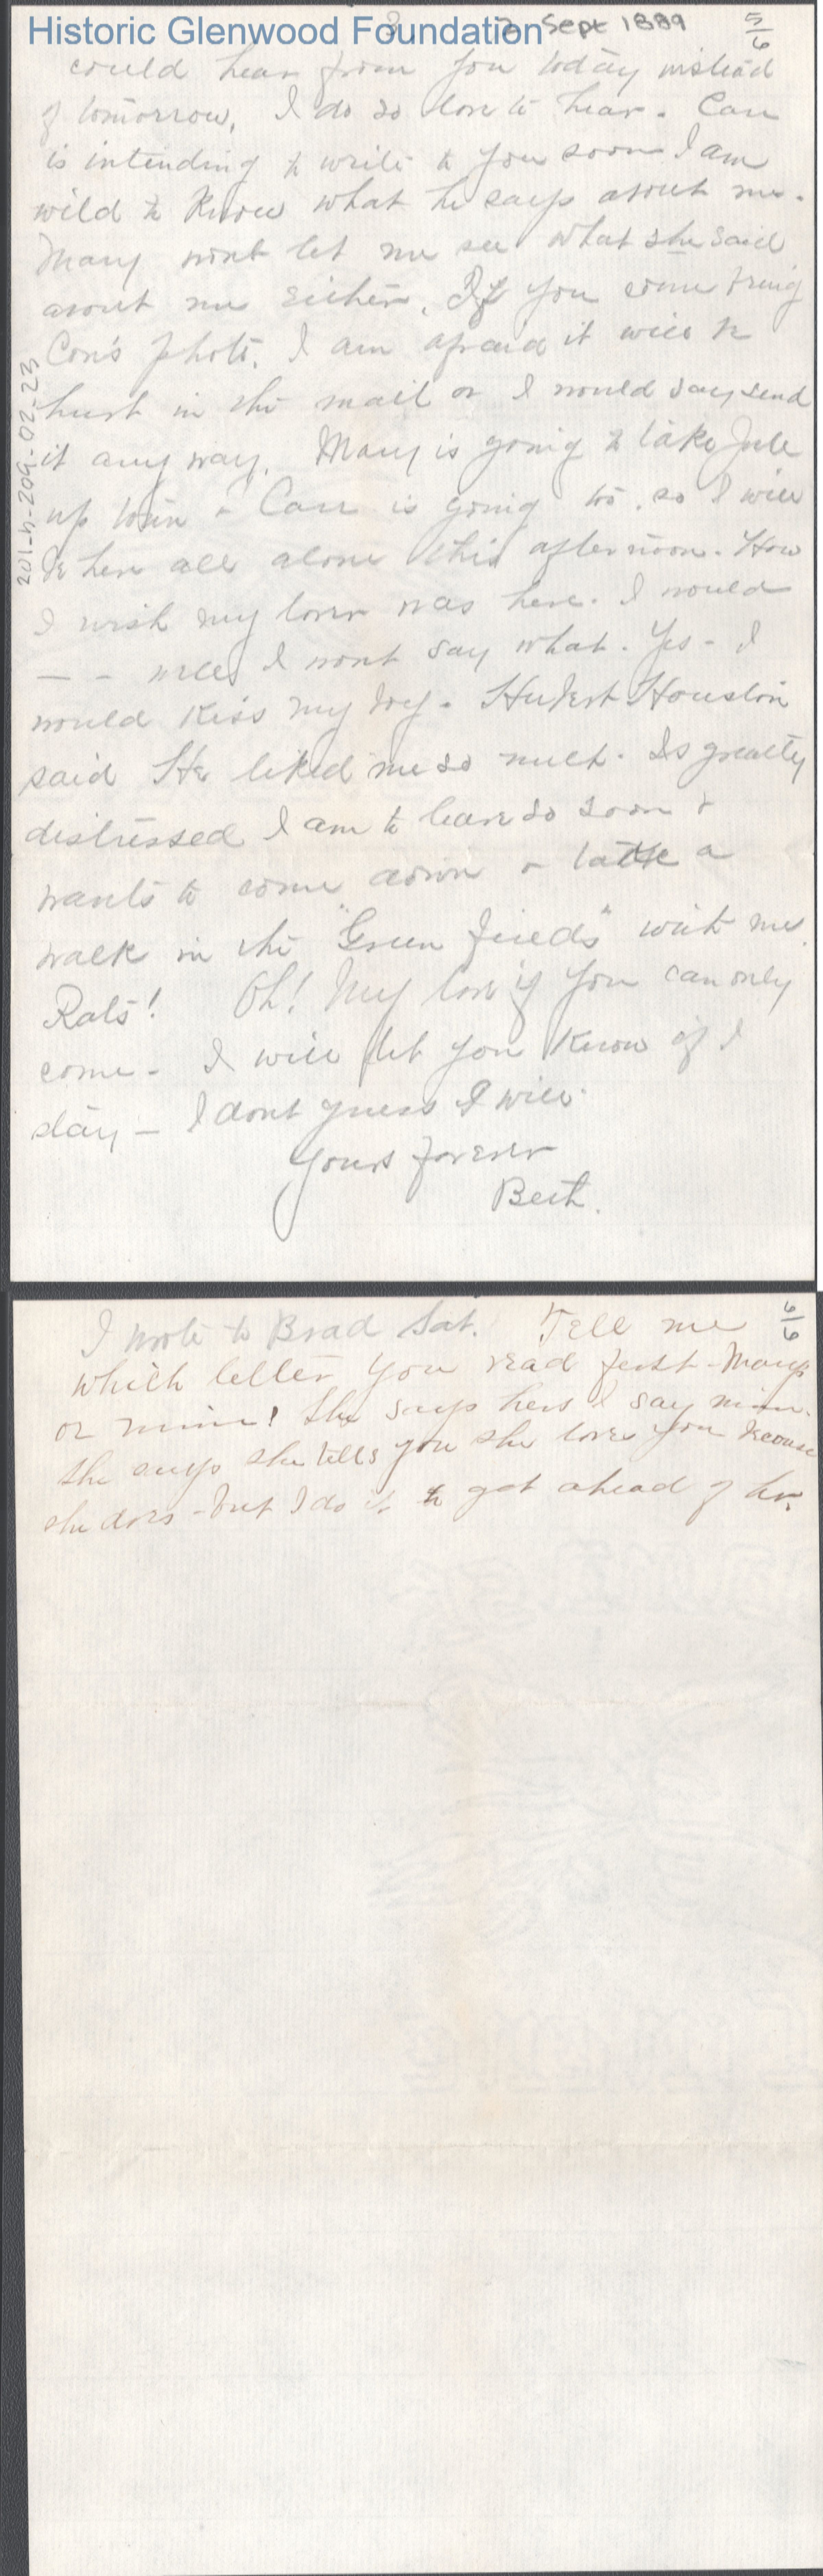 Historic Glenwood Foundation
3. 2 Sept 1889 5/6
could hear from you today instead
of tomorrow, I do so love to hear. Carr
is intending to write to you soon I am
wild to know what he says about me.
Mary wont let me see what she said
about me either. If you come bring
Con's photo. I am afraid it will be
hurt in the mail or I would say send
it any way. Mary is going to take Jule
up town & Carr is going too, so I will
be here all alone this afternoon. How
I wish my lover was here. I would
— - well I wont say what. Yes - I
would kiss my boy. Hubert Houston
said He liked me so much. Is greatly
distressed I am to leave so soon &
wants to come down & take a
walk in the "Green fields" with me.
Rats! Oh! My love if you can only
come - I will let you know if I
stay — I dont guess I will.
Yours forever
Bert.
201-h-209-02-23
6/6
I wrote to Brad Sat. Tell me
which letter you read first - Marys
or mine! She says hers I say mine.
She says she tells you she loves you because
she does - but I do it to get ahead of her.